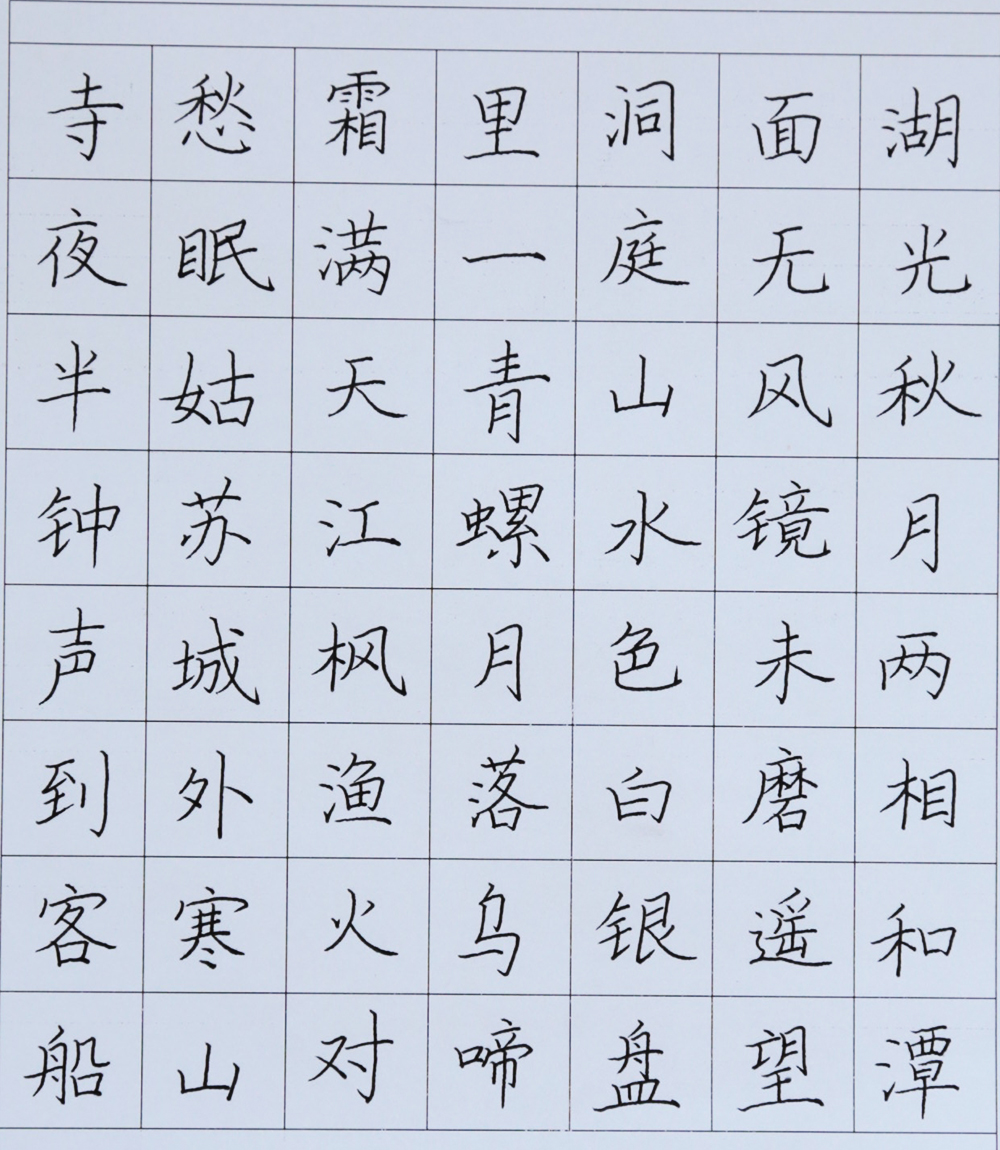 湖光秋月两相和潭
面无风镜未磨遥望
洞庭山水色白银盘
里一青螺月落乌啼
霜满天江枫渔火对
愁眠姑苏城外寒山
寺夜半钟声到客船